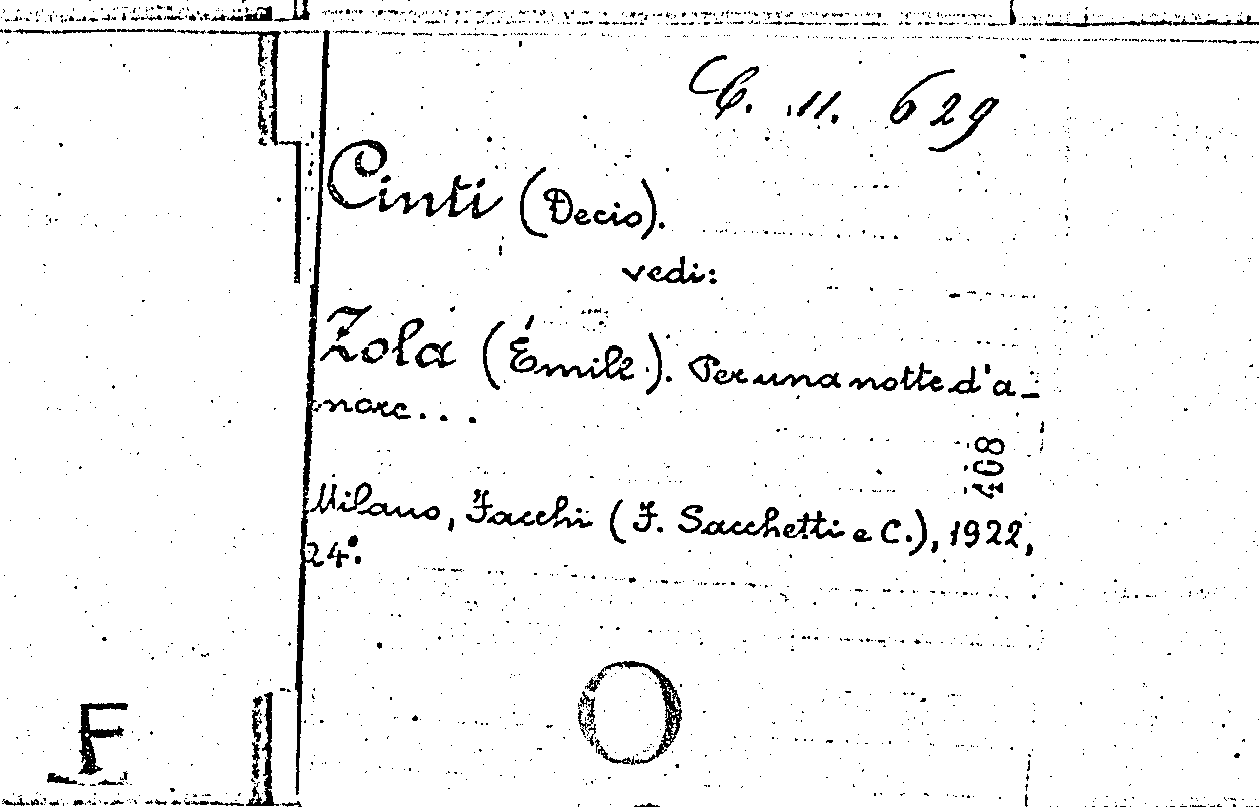 C. 11. 629
Cinti (Decio).
vedi:
Zola (Émile). Per una notte d'a-
more...
408
Milano, Facchi (F. Sacchetti e C.), 1922,
24°.
O
F